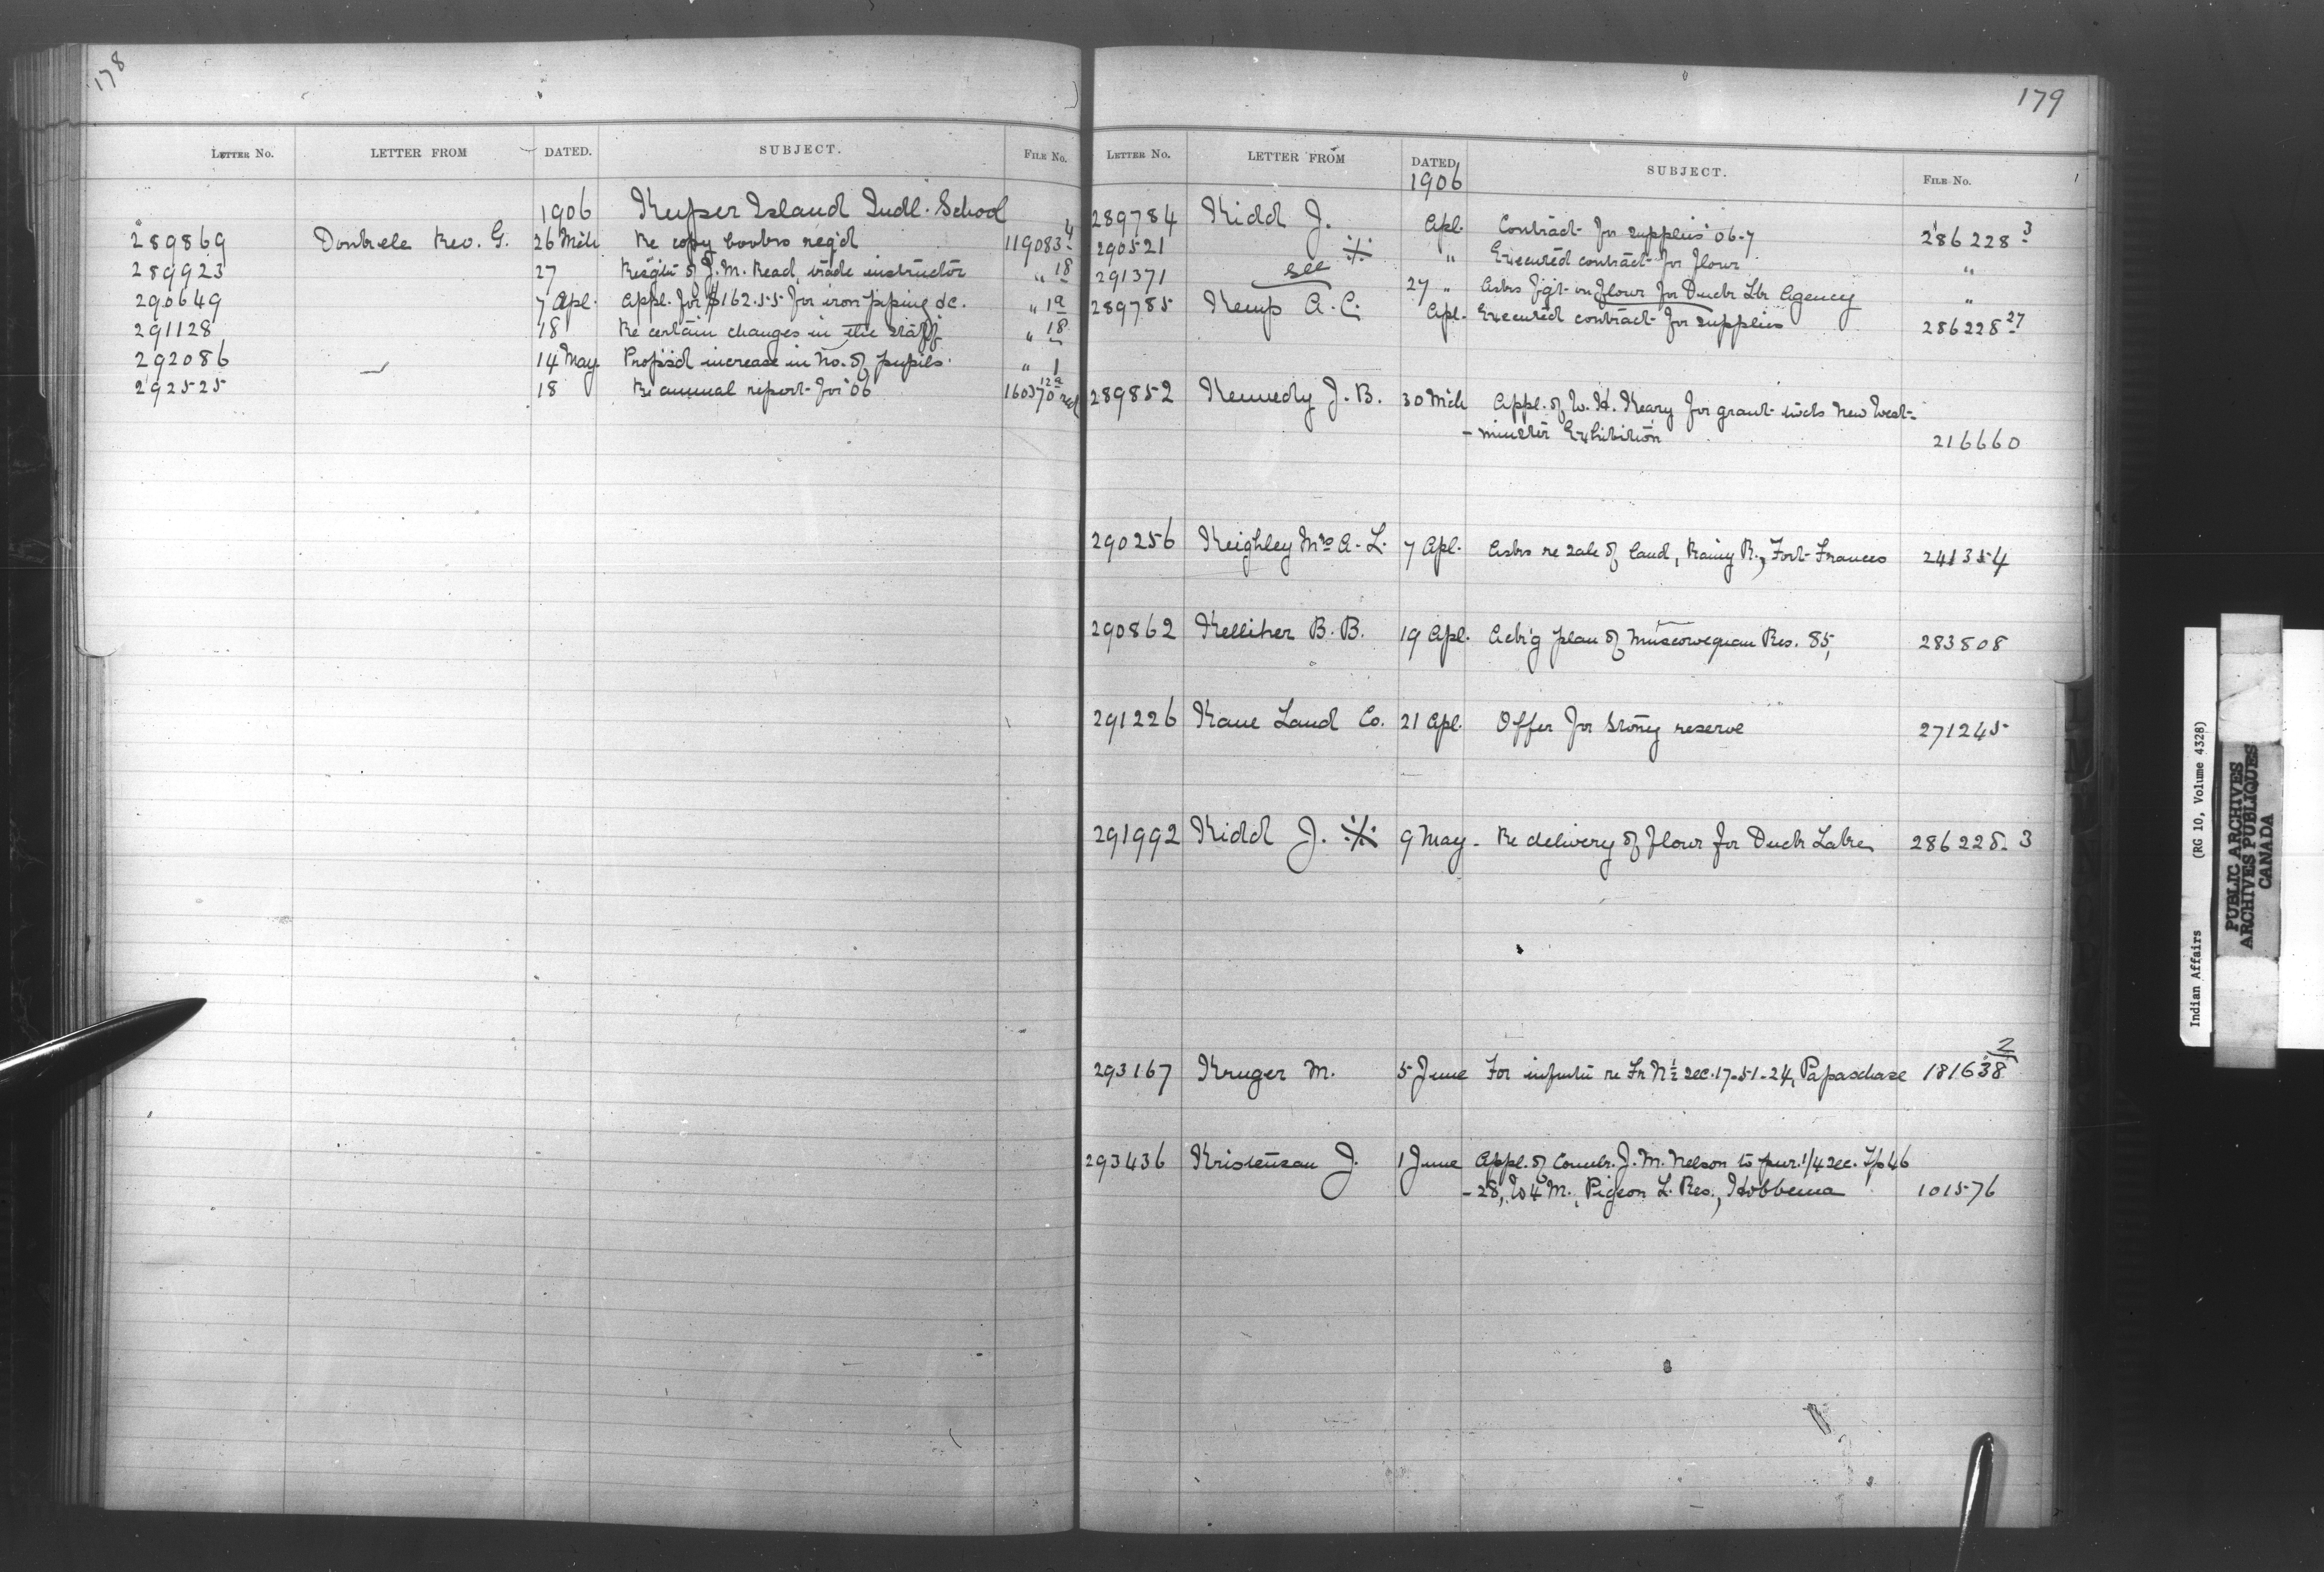 178
LETTER NO. LETTER FROM DATED. SUBJECT. FILE NO.
1906 Kuper Island Indl. School
289869 Donckele Rev. G. 26 Mch Re copy books req'd 119083-4
289923 27 Resig'tn of J. M. Read, trade instructor " 18
290649 7 Apl. Appl. for $162.55 for iron piping &c. " 1a
291128 18 Re certain changes in the staff " 18
292086 14 May Propos'd increase in No. of pupils. " 1
292525 18 Re annual report for '06 160370-12a red
179
LETTER NO. LETTER FROM DATED 1906 SUBJECT. FILE NO.
289784 Kidd J. Apl. Contract for supplies '06-7 286228-3
290521 " Executed contract for flour "
291371 see 27 " Asks f'g't on flour for Duck Lke Agency "
289785 Kemp A. C. Apl. Executed contract for supplies 286228-27
289852 Kennedy J. B. 30 Mch Appl. of W. H. Keary for grant twds New West-
-minster Exhibition 216660
290256 Keighley Mrs A. L. 7 Apl. Asks re sale of land, Rainy R., Fort Frances 241354
290862 Kelliher B. B. 19 Apl. Ack'g plan of Muscowequan Res. 85, 283808
291226 Kane Land Co. 21 Apl. Offer for Stony reserve 271245
291992 Kidd J. 9 May - Re delivery of flour for Duck Lake 286228-3
293167 Kruger M. 5 June For informtn re Fr N½ sec. 17-51-24, Papaschase 181638-2
293436 Kristensen J. 1 June Appl. of J. M. Nelson to pur. 1/4 sec. Tp 46
-28, W4M., Pigeon L. Res., Hobbema 101576
Indian Affairs (RG 10, Volume 4328)
PUBLIC ARCHIVES
ARCHIVES PUBLIQUES
CANADA